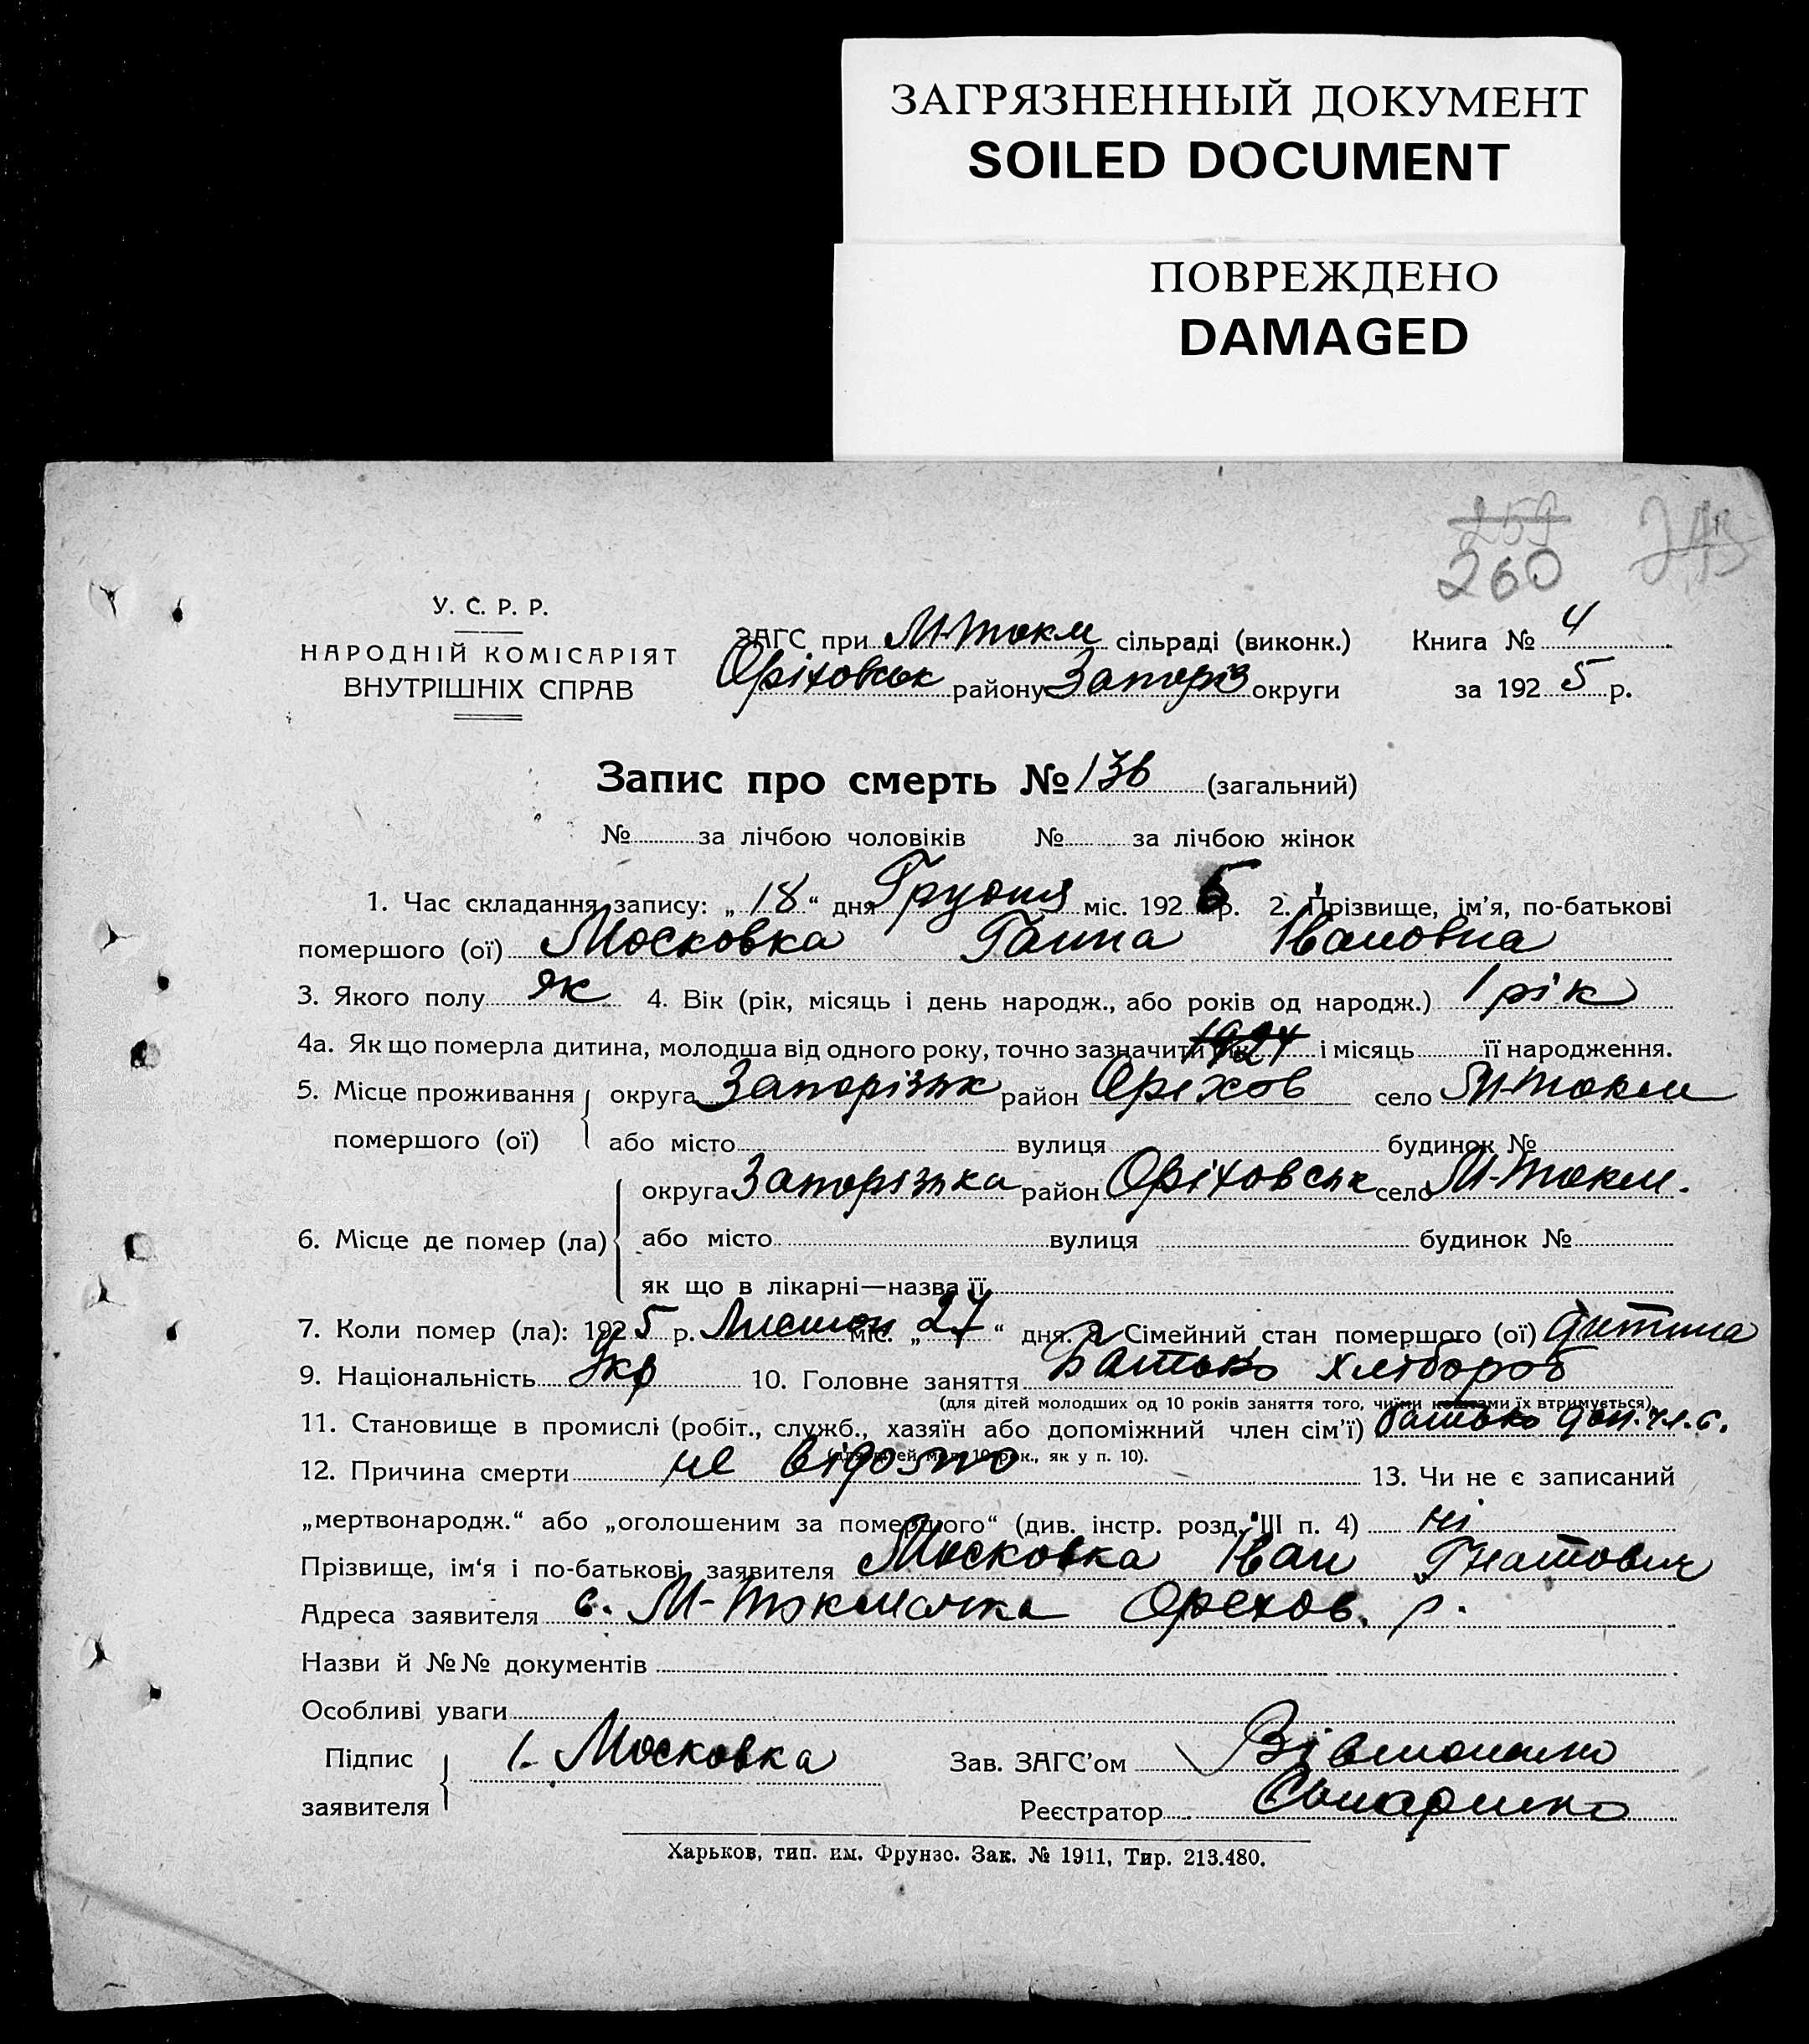 ЗАГРЯЗНЕННЫЙ ДОКУМЕНТ
SOILED DOCUMENT
ПОВРЕЖДЕНО
DAMAGED
259
260
У. С. Р. Р.
НАРОДНІЙ КОМІСАРІЯТ
ВНУТРІШНІХ СПРАВ
ЗАГС при М-токм сільраді (виконк.) Книга № 4
Оріховськ району Запоріз округи за 1925 р.
Запис про смерть № 136 (загальний)
№ за лічбою чоловіків № за лічбою жінок
1. Час складання запису: „18“ дня Грудня міс. 1925 р. 2. Прізвище, ім’я, по-батькові
помершого (ої) Московка Ганна Івановна
3. Якого полу жк 4. Вік (рік, місяць і день народж., або років од народж.) 1 рік
4а. Як що померла дитина, молодша від одного року, точно зазначити рік 1924 і місяць її народження.
5. Місце проживання помершого (ої) округа Запорізьк район Орехов село М-токм
або місто вулиця будинок №
6. Місце де помер (ла) округа Запорізька район Оріховськ село М-токм.
або місто вулиця будинок №
як що в лікарні—назва її
7. Коли помер (ла): 1925 р. Листоп міс. „27“ дня. 8. Сімейний стан помершого (ої) дитина
9. Національність Укр 10. Головне заняття Батько хлібороб
(для дітей молодших од 10 років заняття того, чиїми коштами їх втримується)
11. Становище в промислі (робіт., служб., хазяїн або допоміжний член сім’ї) батько доп. чл. с.
(для дітей мол. 10 рок., як у п. 10).
12. Причина смерти не відомо 13. Чи не є записаний
„мертвонародж.“ або „оголошеним за помершого“ (див. інстр. розд. III п. 4) ні
Прізвище, ім‘я і по-батькові заявителя Московка Іван Гнатович
Адреса заявителя с. М-токмачка Орехов. р.
Назви й №№ документів
Особливі уваги
Підпис заявителя І. Московка Зав. ЗАГС’ом
Реєстратор
Харьков, тип. им. Фрунзе. Зак. № 1911, Тир. 213.480.